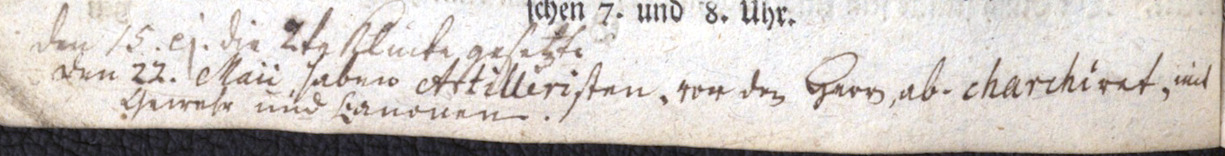 schen 7. und 8. Uhr.
den 15. ej. die 2te gesetzt
den 22. Maii haben Artilleristen, vor dem Herrn, ab-charchiret, mit
Gewehr und Canonen.